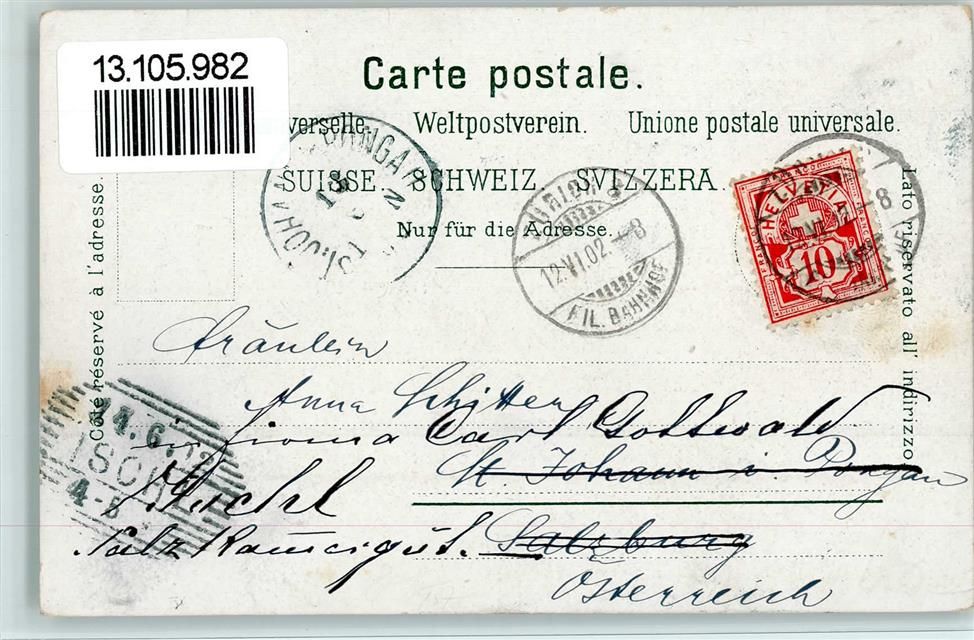 13.105.982
Carte postale.
verselle. Weltpostverein. Unione postale universale.
SUISSE. SCHWEIZ. SVIZZERA.
Nur für die Adresse.
Côté réservé à l'adresse.
Lato riservato all' indirizzo
ST. JOHANN PONGAU
12.VI.02. 8
FIL. BAHNHOF
HELVETIA
FRANCO
FRANCO
10
Fräulein
Anna Schitter
in firma Carl Gottwald
St. Johann i. Pongau
Ischl
Salzkammergut. Salzburg
Österreich
14.6
ISCHL
4-5